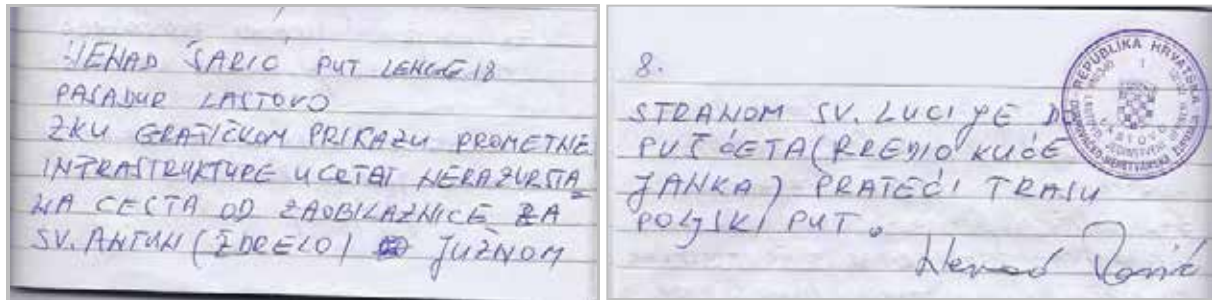 NENAD ŠARIĆ PUT LENGE 18
PASADUR LASTOVO
ZKU GRAFIČKOM PRIKAZU PROMETNE
INFRASTRUKTURE UCRTAT NERAZVRSTA
NA CESTA OD ZAOBILAZNICE ZA
SV. ANTUN (ŽDRELO) JUŽNOM
8.
STRANOM SV. LUCIJE D
PUČĆETA (PREDIO KUĆE
JANKA) PRATEĆI TRASU
POLJSKI PUT.
REPUBLIKA HRVATSKA
LASTOVO